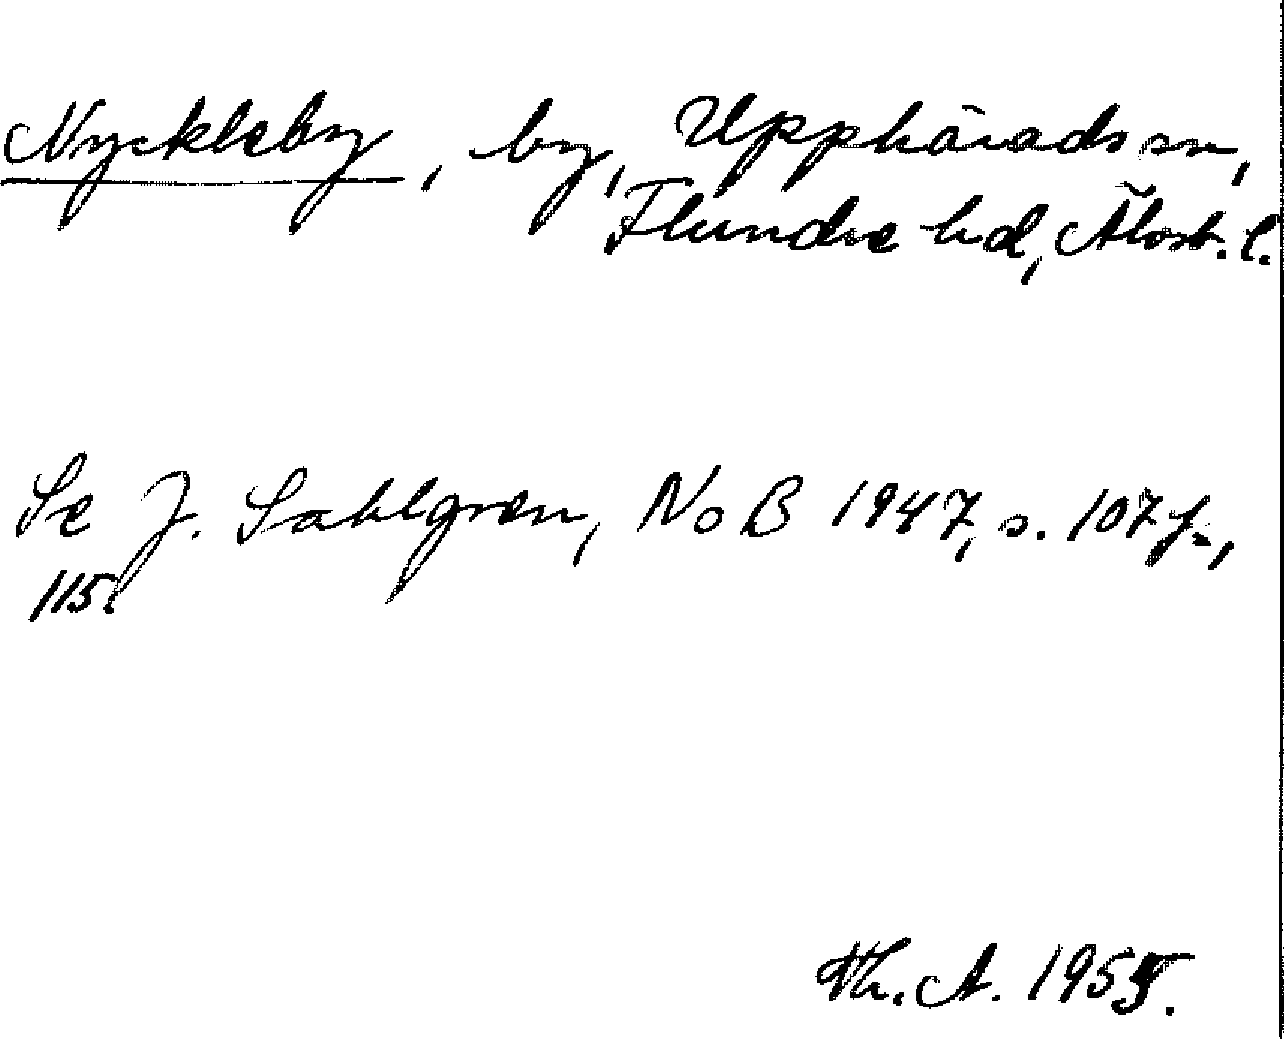 Nyckleby, by, Upphärads sn,
Flundre hd, Älvsb. l.
Se J. Sahlgren, NoB 1947, s. 107 f.,
115.
Th. A. 1955.